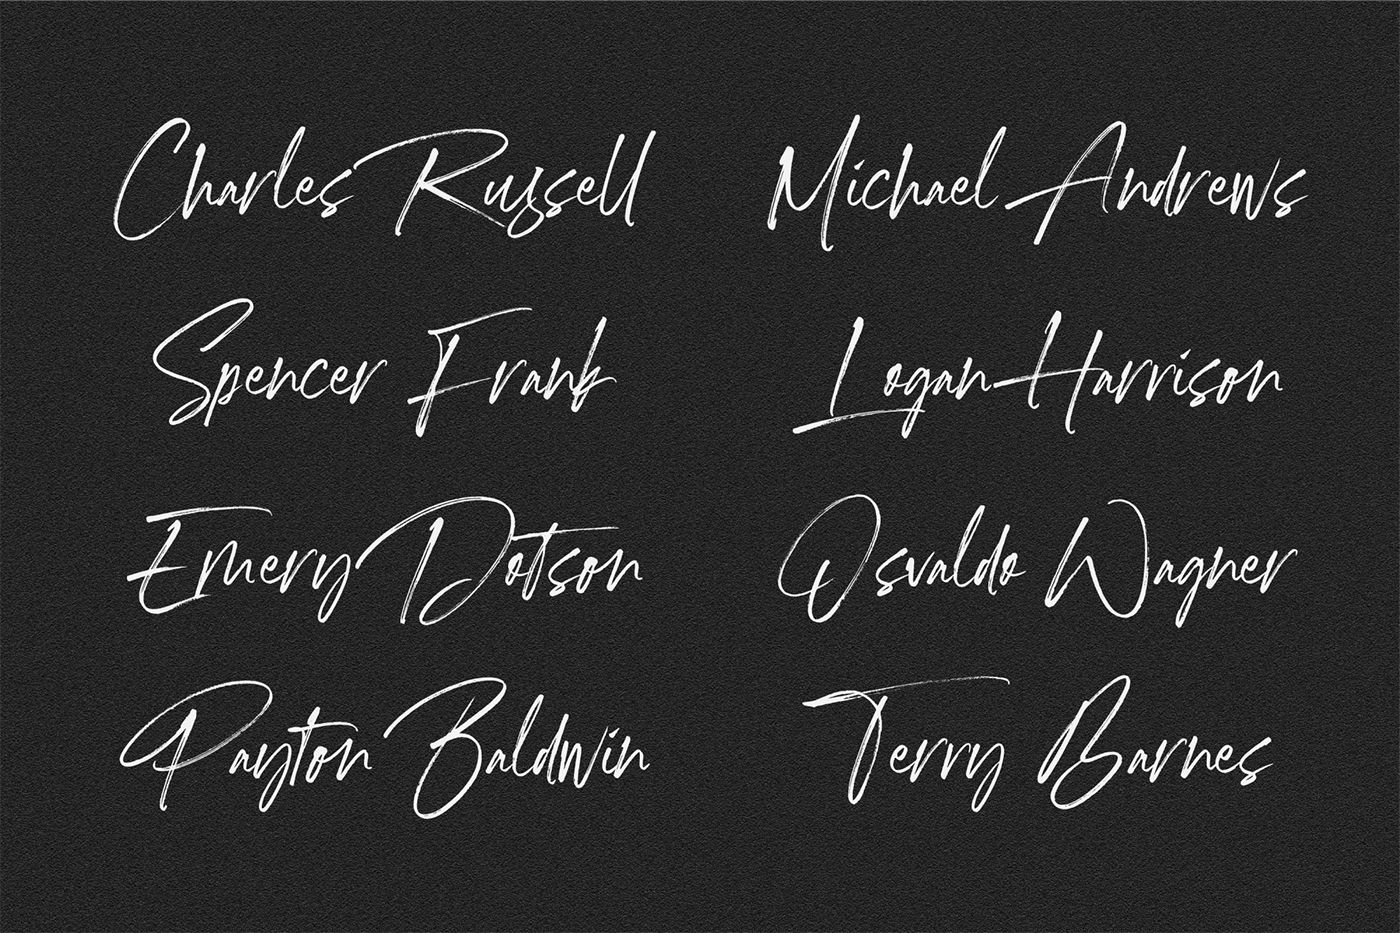 Charles Russell
Michael Andrews
Spencer Frank
Logan Harrison
Emery Dotson
Osvaldo Wagner
Payton Baldwin
Terry Barnes